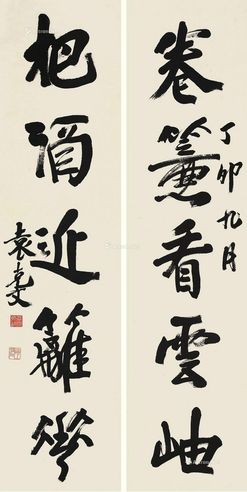 卷簾看雲岫
丁卯九月
把酒近籬花
袁克文